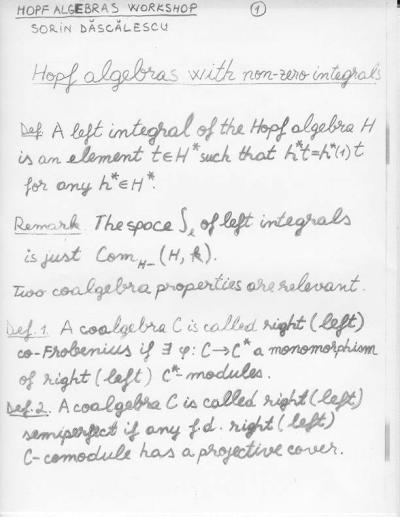 HOPF ALGEBRAS WORKSHOP ①
SORIN DĂSCĂLESCU
Hopf algebras with non-zero integrals
Def. A left integral of the Hopf algebra H
is an element t∈H* such that h*t=h*(1)t
for any h*∈H*.
Remark. The space ∫ₗ of left integrals
is just Com_H-(H, k).
Two coalgebra properties are relevant.
Def.1. A coalgebra C is called right (left)
co-Frobenius if ∃ φ: C→C* a monomorphism
of right (left) C*-modules.
Def.2. A coalgebra C is called right (left)
semiperfect if any f.d. right (left)
C-comodule has a projective cover.